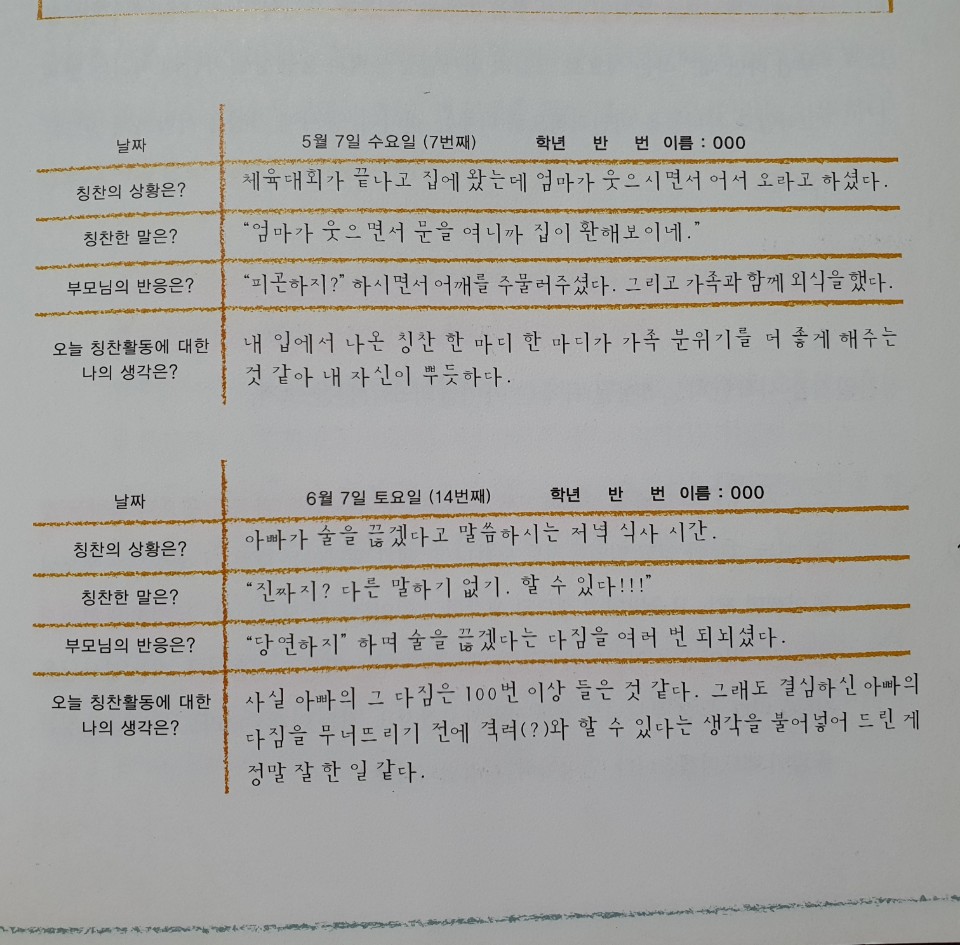 날짜 5월 7일 수요일 (7번째) 학년 반 번 이름 : 000
칭찬의 상황은? 체육대회가 끝나고 집에 왔는데 엄마가 웃으시면서 어서 오라고 하셨다.
칭찬한 말은? “엄마가 웃으면서 문을 여니까 집이 환해보이네.”
부모님의 반응은? “피곤하지?” 하시면서 어깨를 주물러주셨다. 그리고 가족과 함께 외식을 했다.
오늘 칭찬활동에 대한 내 입에서 나온 칭찬 한 마디 한 마디가 가족 분위기를 더 좋게 해주는
나의 생각은? 것 같아 내 자신이 뿌듯하다.
날짜 6월 7일 토요일 (14번째) 학년 반 번 이름 : 000
칭찬의 상황은? 아빠가 술을 끊겠다고 말씀하시는 저녁 식사 시간.
칭찬한 말은? “진짜지? 다른 말하기 없기. 할 수 있다!!!”
부모님의 반응은? “당연하지” 하며 술을 끊겠다는 다짐을 여러 번 되뇌셨다.
오늘 칭찬활동에 대한 사실 아빠의 그 다짐은 100번 이상 들은 것 같다. 그래도 결심하신 아빠의
나의 생각은? 다짐을 무너뜨리기 전에 격려(?)와 할 수 있다는 생각을 불어넣어 드린 게
정말 잘 한 일 같다.